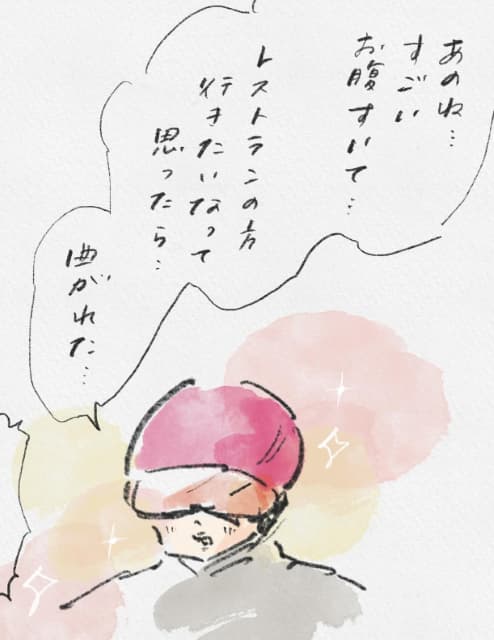 あのね…
すごい
お腹すいて…
レストランの方
行きたいなって
思ったら…
曲がれた…